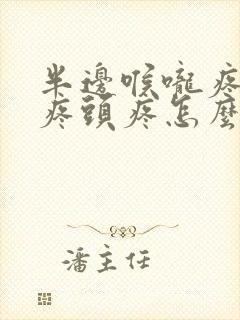 半邊喉嚨疼
疼頭疼怎麼
潘主任